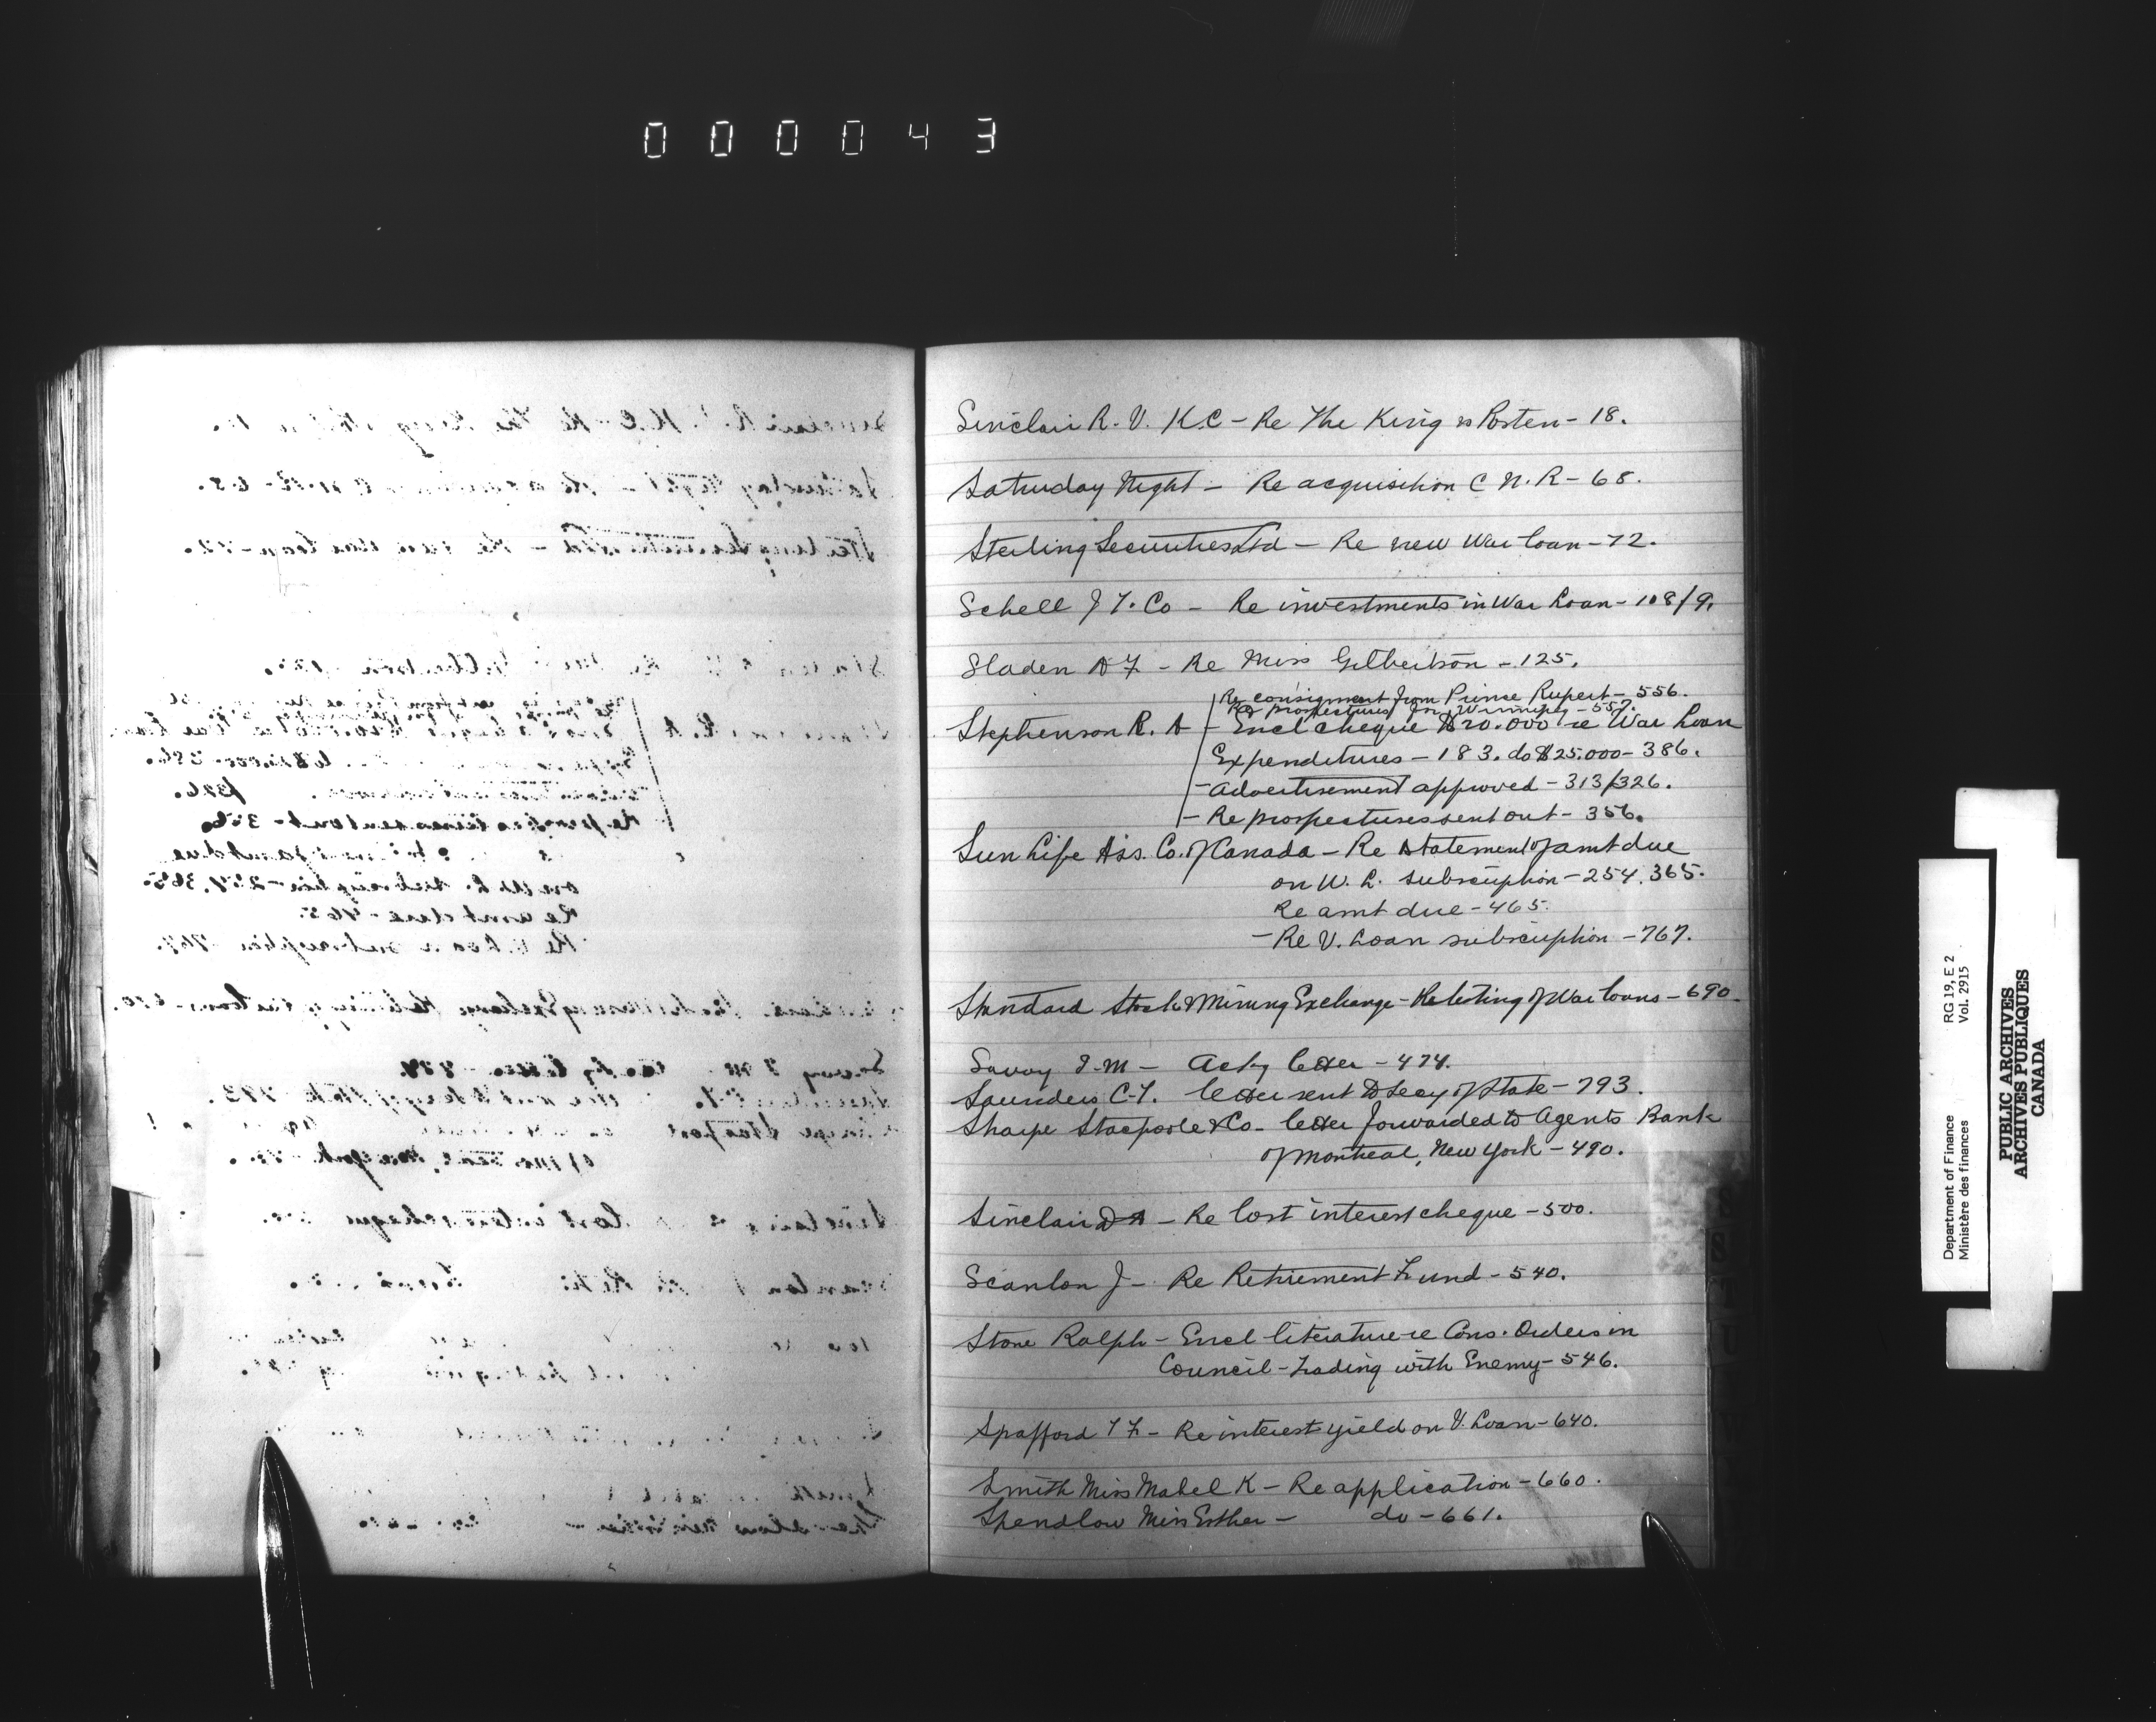 000043
Sinclair R. V. K.C - Re The King vs Posten - 18.
Saturday Night - Re acquisition C N. R - 68.
Sterling Securities Ltd - Re new War Loan - 72.
Schell J T. Co - Re investments in War Loan - 108/9.
Sladen A F - Re Miss Gilbertson - 125.
Re consignment from Prince Rupert - 556.
Re prospectuses for Winnipeg - 557.
Stephenson R. A - Encl cheque $20.000 re War Loan
Expenditures - 183. do $25.000 - 386.
- Advertisement approved - 313/326.
- Re prospectuses sent out - 356.
Sun Life Ass. Co. of Canada - Re statement of amt due
on W. L. subscription - 254. 365.
Re amt due - 465.
- Re V. Loan subscription - 767.
Standard Stock & Mining Exchange - Re listing of War Loans - 690.
Savoy J. M - Ackg letter - 474.
Saunders C. T. letter sent to Secy of State - 793.
Sharpe Stacpoole & Co - letter forwarded to Agents Bank
of Montreal, New York - 490.
Sinclair D A - Re lost interest cheque - 500.
Scanlon J - Re Retirement Fund - 540.
Stone Ralph - Encl literature re Cons. Orders in
Council - Trading with Enemy - 546.
Spafford T F - Re interest yield on V. Loan - 640.
Smith Miss Mabel K - Re application - 660.
Spendlow Miss Esther - do - 661.
Department of Finance RG 19, E 2
Ministère des finances Vol. 2915
PUBLIC ARCHIVES
ARCHIVES PUBLIQUES
CANADA